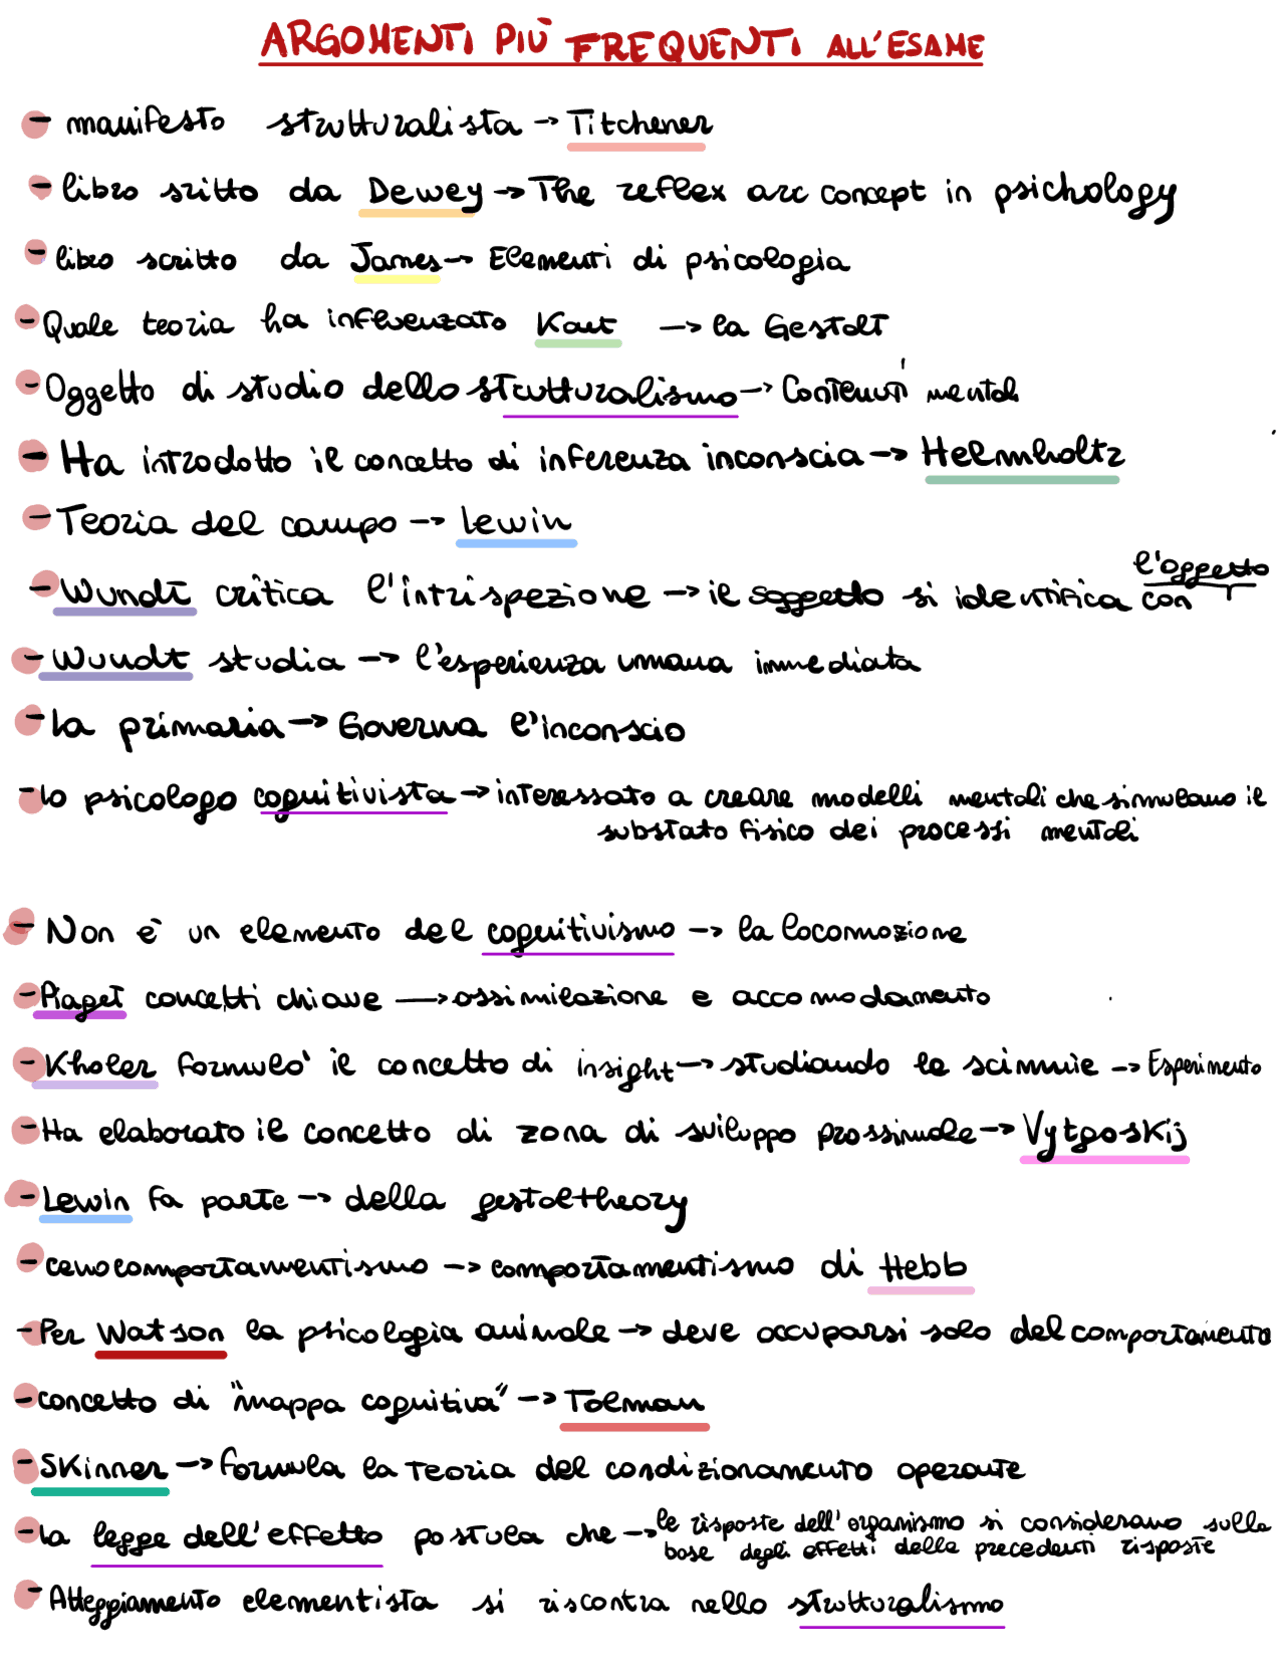 ARGOMENTI PIÙ FREQUENTI ALL'ESAME
- manifesto strutturalista → Titchener
- libro sritto da Dewey → The reflex arc concept in psichology
- libro scritto da James → Elementi di psicologia
- Quale teoria ha influenzato Kant → la Gestalt
- Oggetto di studio dello strutturalismo → Contenuti mentali
- Ha introdotto il concetto di inferenza inconscia → Helmholtz
- Teoria del campo → Lewin
- Wundt critica l'intrispezione → il soggetto si identifica con l'oggetto
- Wundt studia → l'esperienza umana immediata
- la primaria → Governa l'inconscio
- lo psicologo cognitivista → interessato a creare modelli mentali che simulano il
substato fisico dei processi mentali
- Non è un elemento del cognitivismo → la locomozione
- Piaget concetti chiave → assimilazione e accomodamento
- Kholer formulò il concetto di insight → studiando le scimmie → Esperimento
- Ha elaborato il concetto di zona di sviluppo prossimale → Vytgoskij
- Lewin fa parte → della gestaltheory
- cenocomportamentismo → comportamentismo di Hebb
- Per Watson la psicologia animale → deve occuparsi solo del comportamento
- concetto di "mappa cognitiva" → Tolman
- Skinner → formula la teoria del condizionamento operante
- la legge dell'effetto postula che → le risposte dell'organismo si considerano sulla
base degli effetti delle precedenti risposte
- Atteggiamento elementista si riscontra nello strutturalismo